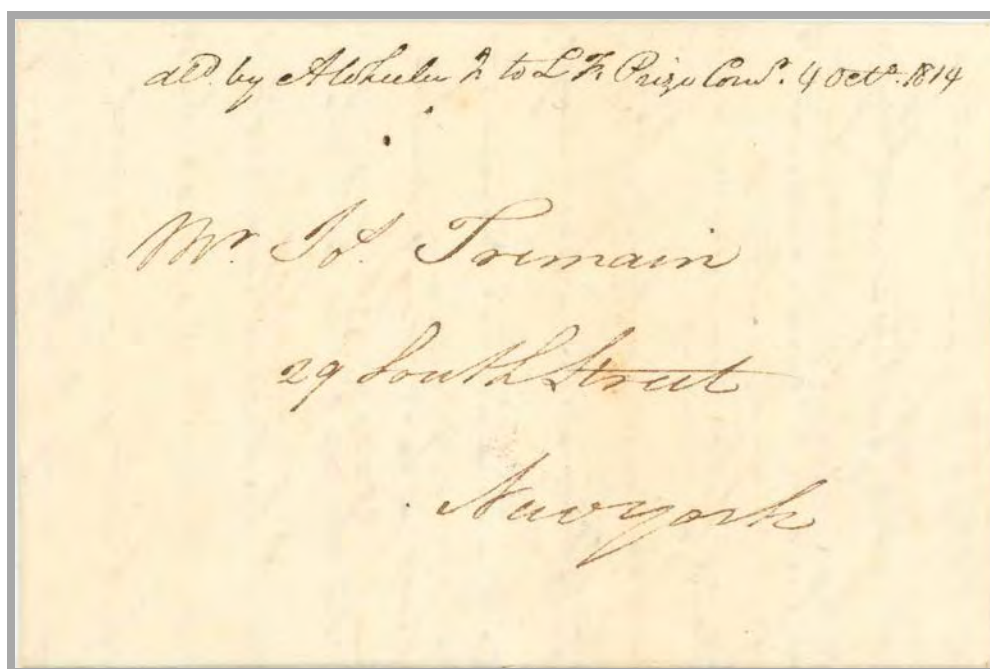 deld. by A Wheeler Jr to L F. Prize Comr. 4 Octr. 1814
Mr. Js. Tremain
29 South Street
New york